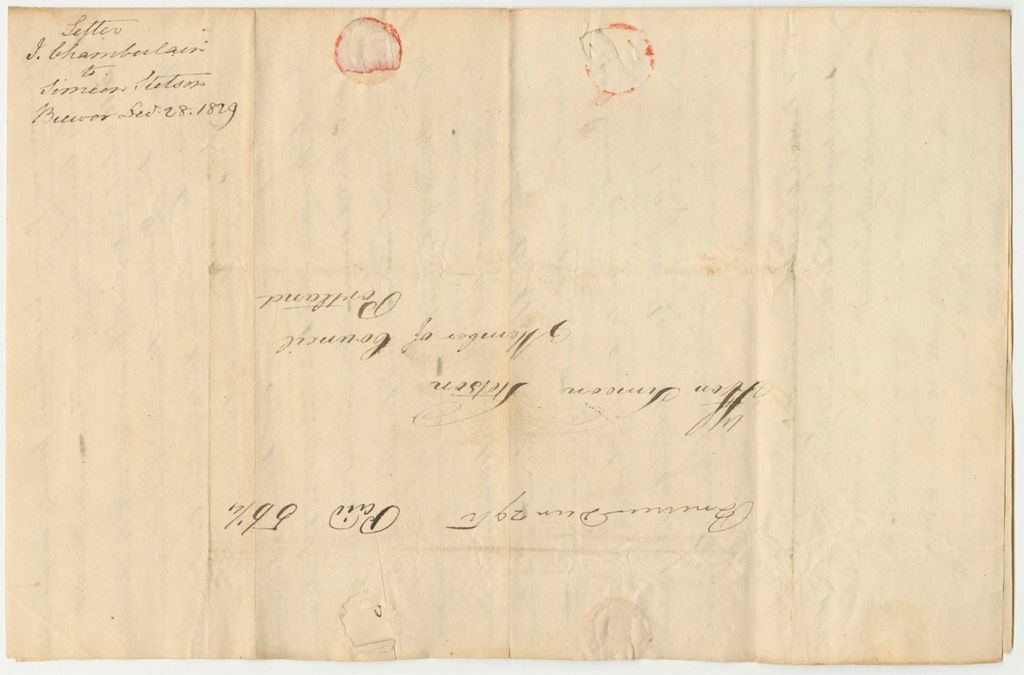 Letter
J. Chamberlain
to
Simeon Stetson
Brewer Dec. 28. 1829
Brewer Decr 29th Paid 56¼
Hon Simeon Stetson
Member of Council
Portland